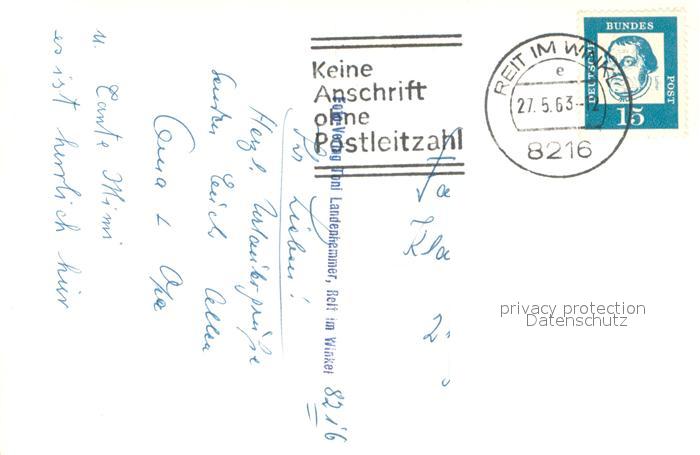 Keine
Anschrift
ohne
Postleitzahl
REIT IM WINKL
e
27.5.63--12
8216
DEUTSCHE
BUNDES
POST
15
Foto-Verlag Toni Landenhammer, Reit im Winkel
8216
Ihr Lieben!
Herzl. Urlaubsgrüße
senden Euch allen
Oma & Opa
u. Tante Mimi
es ist herrlich hier
Fa
Kla
privacy protection
Datenschutz